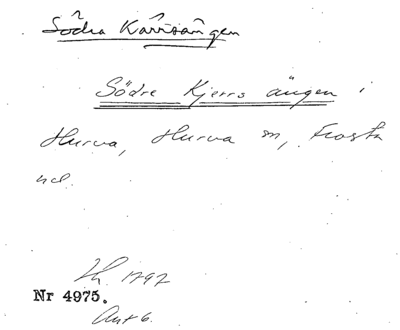 Södra Kärrsängen
Södre Kjerrs ängen i
Hurva, Hurva sn, Frosta
hd.
Lh. 1797
Nr 4975.
Akt 6.